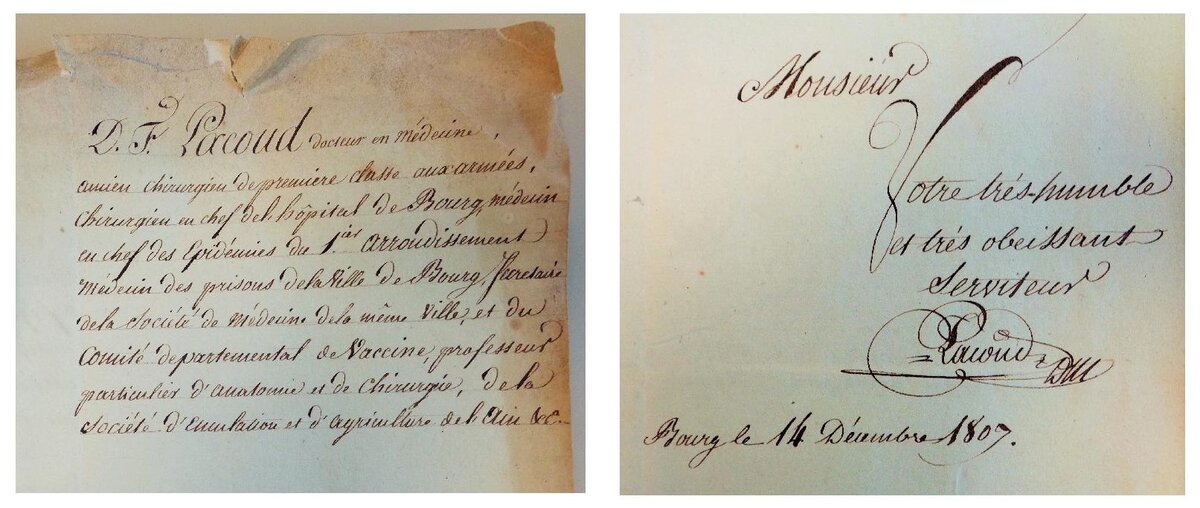 D. F. Pacoud docteur en médecine,
ancien chirurgien de première classe aux armées,
Chirurgien en chef de l'hôpital de Bourg, médecin
en chef des Epidémies du 1.er arrondissement
médecin des prisons de la Ville de Bourg, Secretaire
de la Société de Médecine de la même Ville, et du
Comité departemental de Vaccine, professeur
particulier d'anatomie et de Chirurgie, de la
Société d'Emulation et d'agriculture de l'Ain &c.
Monsieur
Votre trés-humble
et trés obeissant
Serviteur
Pacoud DM
Bourg le 14 Décembre 1807.